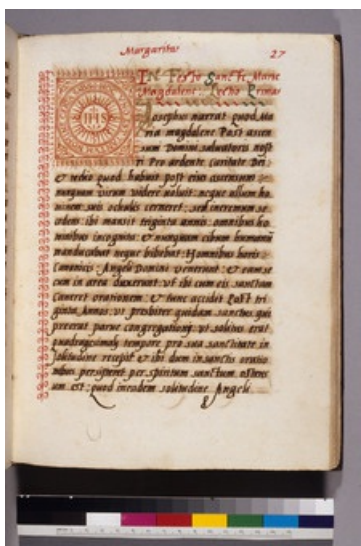 Margaritus 27
IHS
In Festo Sancte Marie
Magdalene: Lectio Prima
Iosephus narrat quod Ma
ria magdalene Post ascen
sum Domini salvatoris nost
ri Pro ardente caritate Dei
& tedio quod habuit post eius ascensum
nunquam virum videre noluit: neque ullum ho
minem suis oculis cerneret: sed in eremum se
cedens ibi mansit triginta annis: omnibus ho
minibus incognita: & nunquam cibum humanũ
manducabat neque bibebat: In omnibus horis
canonicis Angeli Domini venerunt: & eam se
cum in aera duxerunt: vt ibi cum eis sanctam
caneret orationem. & tunc accidit Post tri
ginta Annos: vt presbiter quidam sanctus qui
preerat parve congregationis: vt solitus erat
quadragesimali tempore pro sua sanctitate in
solitudine recepit & ibi dum in sanctis oratio
nibus persisteret per spiritum sanctum ostens
um est: quod in eadem solitudine Angeli